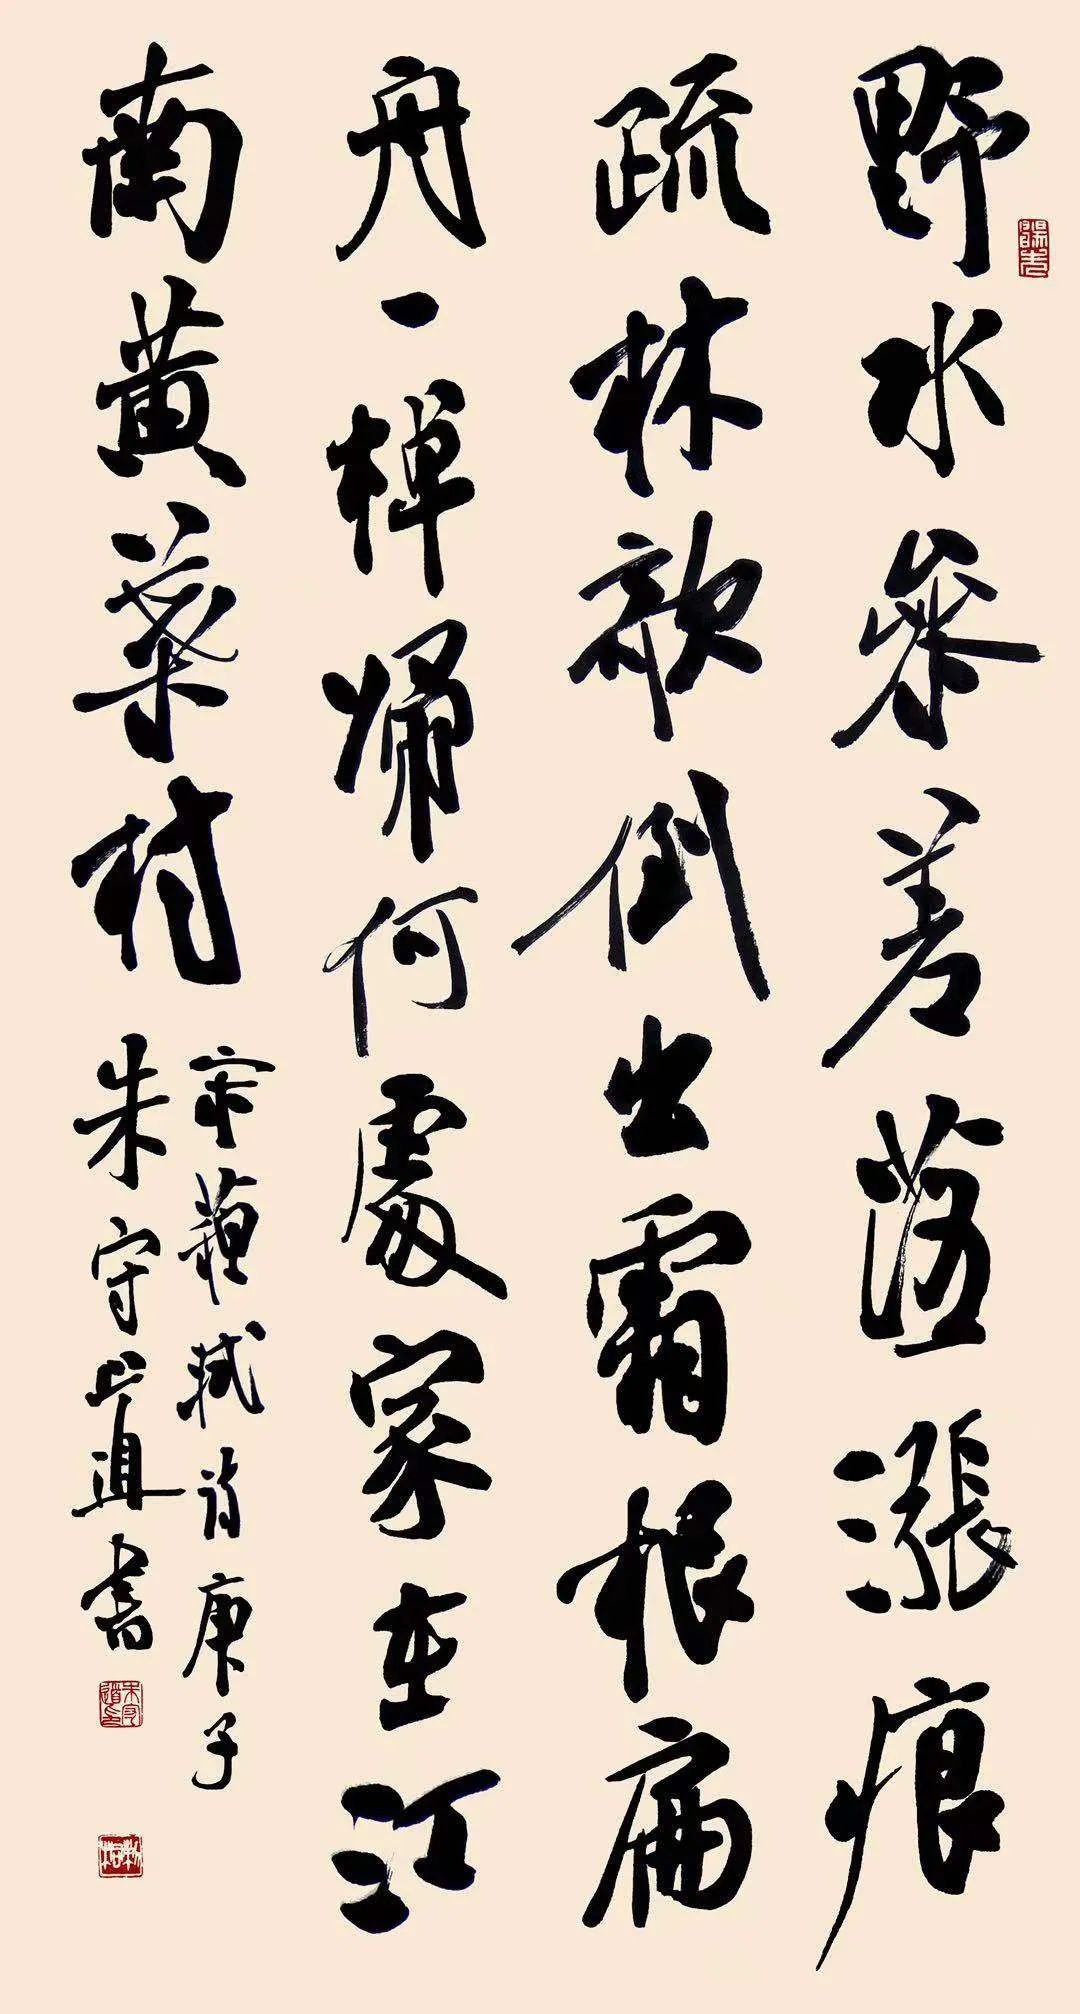 野水參差落漲痕
疏林欹倒出霜根扁
舟一棹歸何處家在江
南黃葉村
宋蘇軾詩庚子
朱守道書